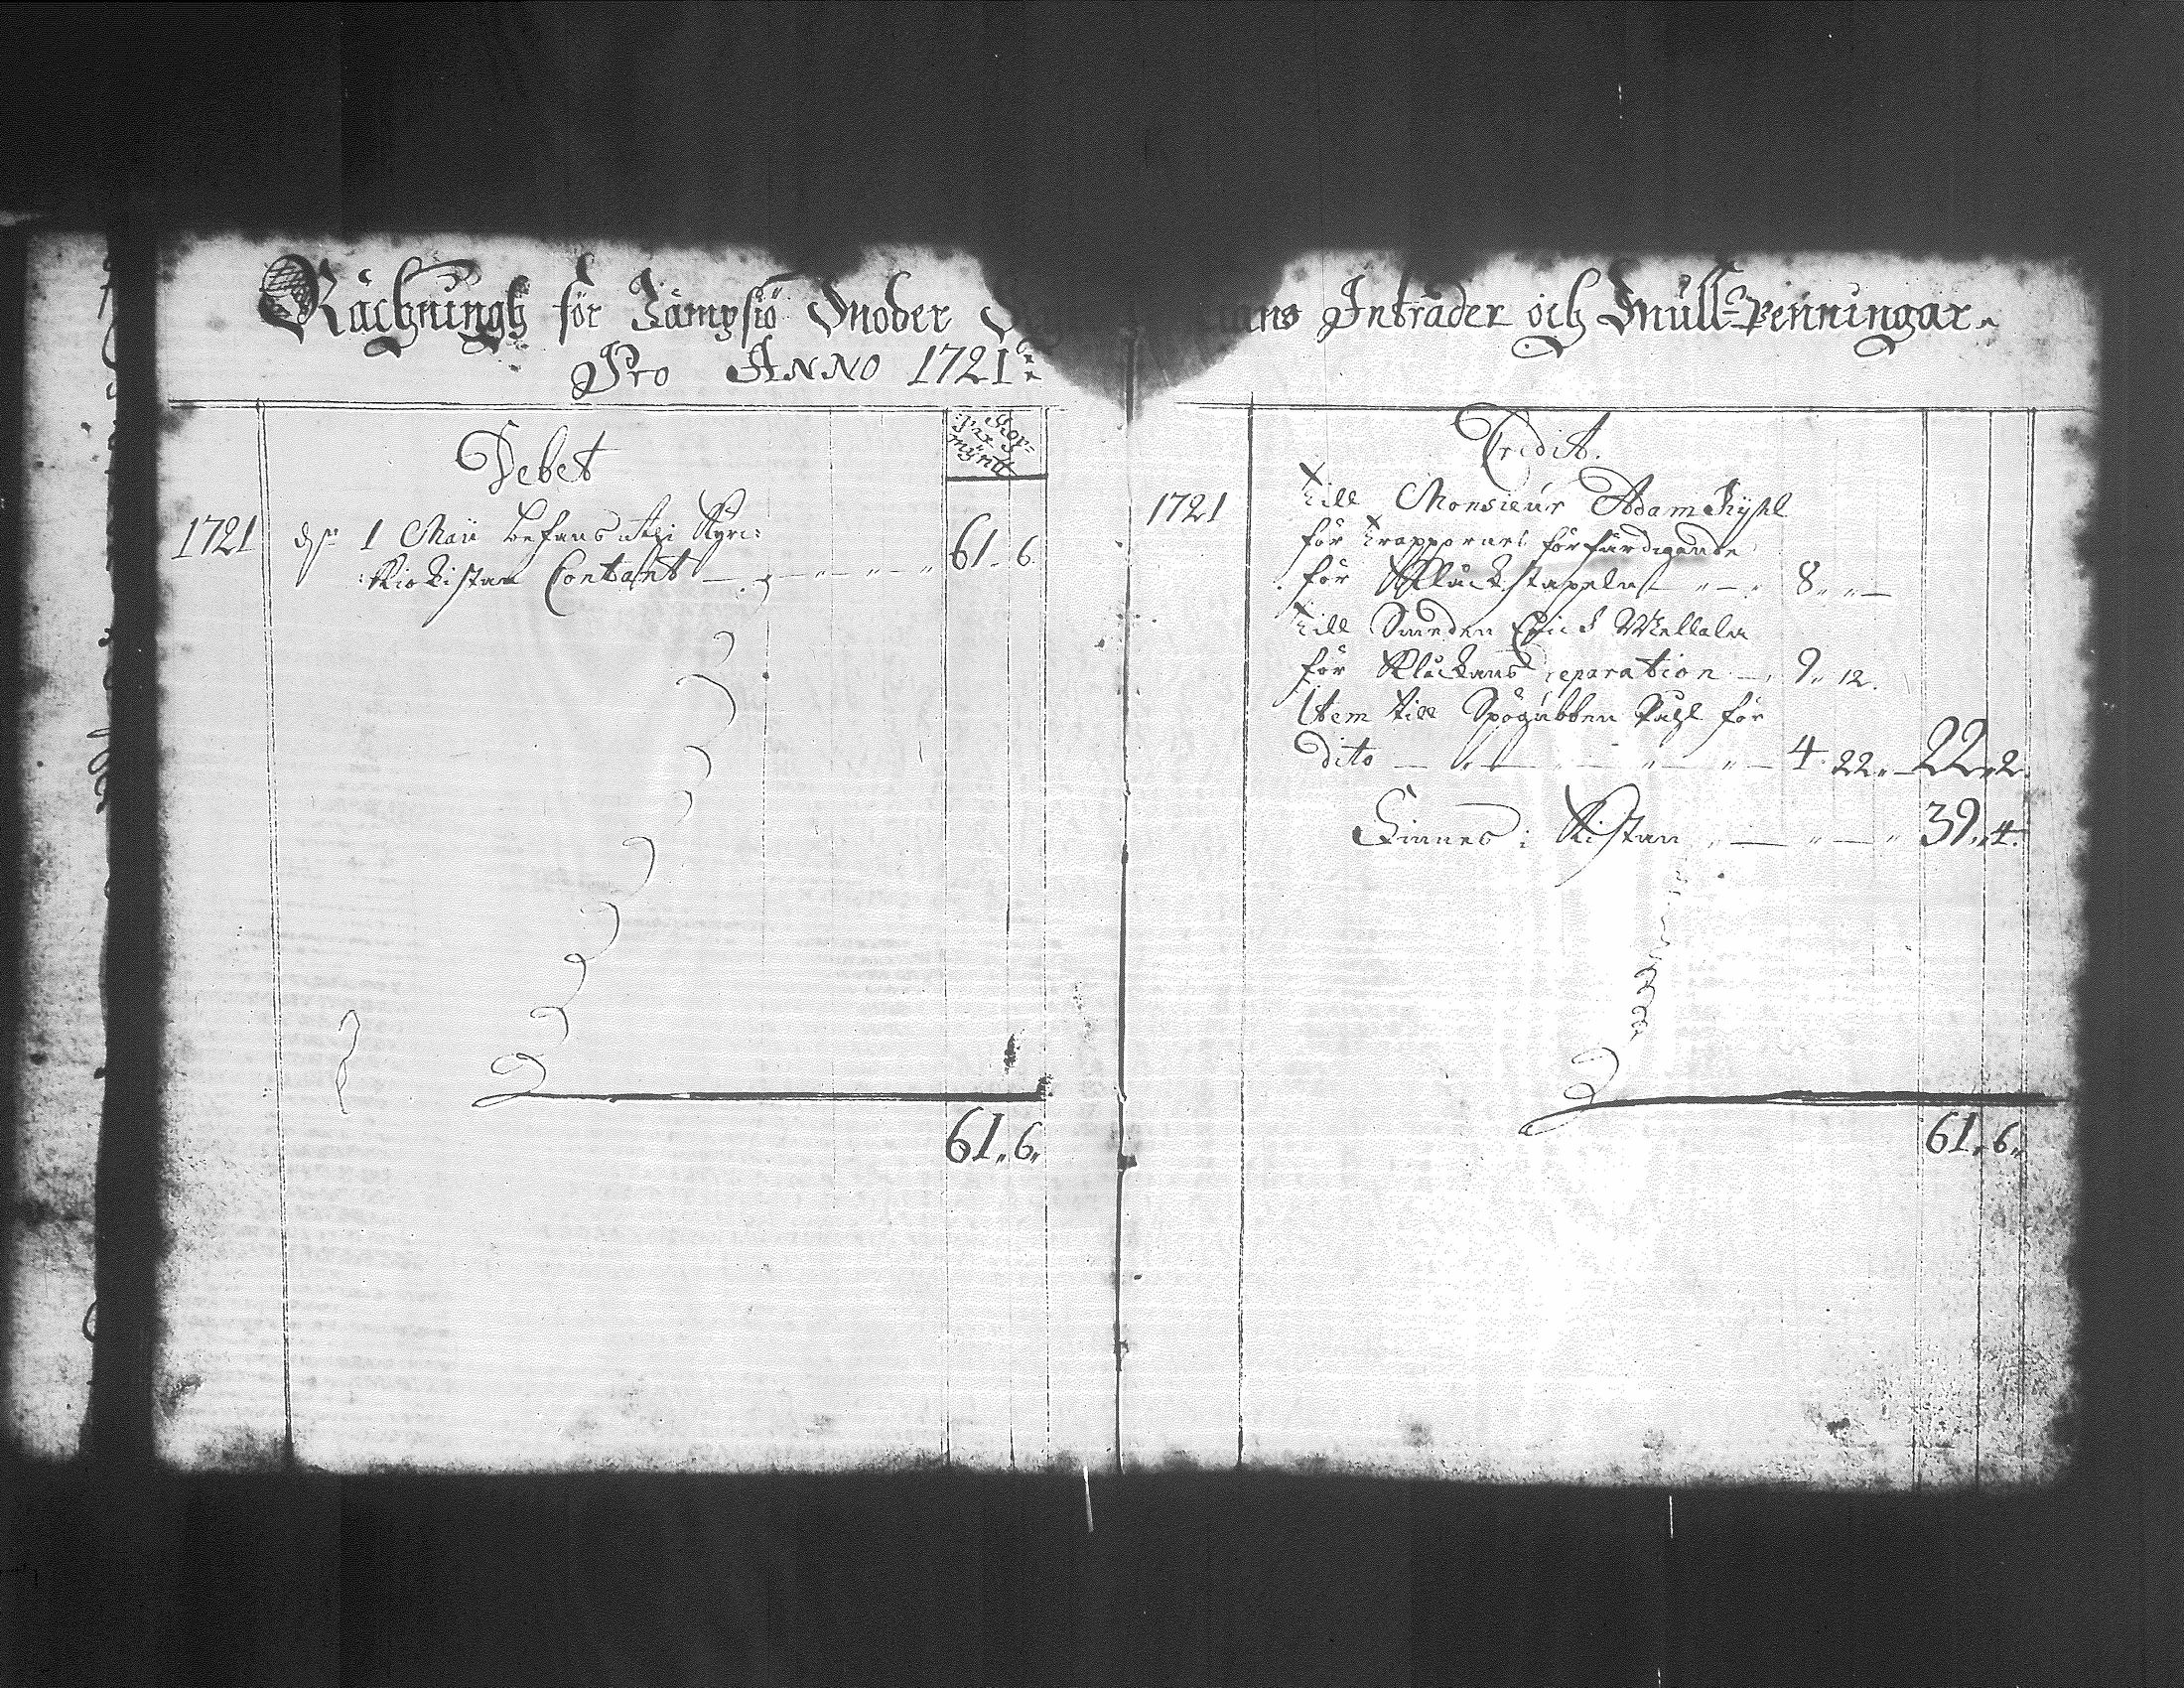 Räckningh för Kämpsiö Moder
ans Inträder och Mull-Penningar.
Pro ANNO 1721
Debet
Kop-
par
mÿntt
1721 dn 1 Maii befans uthi Kyrc:
Kiokistan Contant 61. 6.
61. 6.
Credit.
1721 till Monsieur Adam
för trappornes förfärdigande
för Kluckstapeln 8
till Smeden Erick Mellalu
för Kluckans reparation 9. 12.
Item till Spögubben Påhl för
dito 4. 22. 22. 2.
Finnes i Kistan 39. 4.
61. 6.